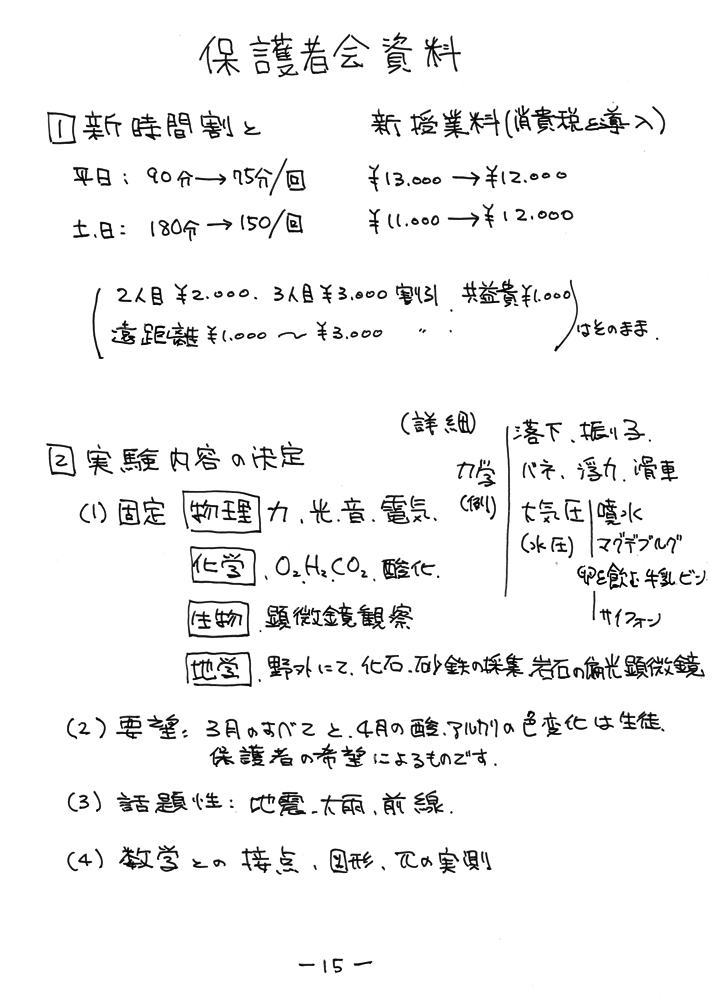 保護者会資料
1 新時間割と 新授業料(消費税を導入)
平日: 90分→75分/回 ¥13.000→¥12.000
土.日: 180分→150/回 ¥11.000→¥12.000
(2人目¥2.000. 3人目¥3.000割引. 共益費¥1.000
遠距離¥1.000〜¥3.000 〃 .)はそのまま.
2 実験内容の決定
(1) 固定 物理 力、光.音.電気.
(詳細)
力学
(例)
落下、振り子.
バネ、浮力.滑車
大気圧 噴水
(水圧) マグデブルグ
卵を飲む牛乳ビン
サイフォン
化学、O₂、H₂、CO₂、酸化.
生物.顕微鏡観察
地学.野外にて、化石、砂鉄の採集、岩石の偏光顕微鏡
(2) 要望: 3月のすべてと.4月の酸、アルカリの色変化は生徒、
保護者の希望によるものです.
(3) 話題性: 地震、大雨、前線.
(4) 数学との接点、図形、πの実測
-15-